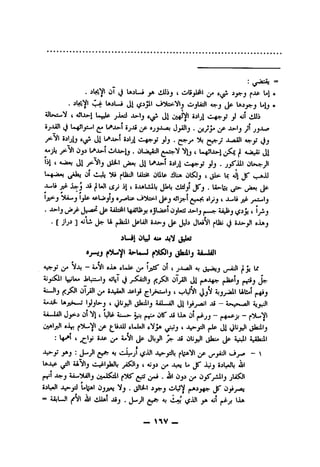 = يقتضي :
إما عدم وجود شيء من المخلوقات ، وذلك هو فسادها في آن الإيجاد .
• وإما وجودها على وجه التفاوت والاختلاف المؤدي إلى فسادها غبّ الإيجاد .
ذلك أنه لو توجهت إرادة الإلهين إلى شيء واحد لتعذر عليهما إحداثه ، لاستحالة
صدور أثر واحد عن مؤثرين . والقول بصدوره عن قدرة أحدهما مع استوائهما في القدرة
وفي توجه القصد ترجيح بلا مرجح . ولو توجهت إرادة أحدهما إلى شيء وإرادة الآخر
إلى نقيضه لم يمكن إحداثهما ، وإلا لاجتمع النقيضان . وإحداث أحدهما دون الآخر يلزمه
الرجحان المذكور . ولو توجهت إرادة أحدهما إلى بعض الخلق والآخر إلى بعضه ، إذاً
لذهب كل إله بما خلق ، ولكان هناك عالمان مختلفا النظام فلا يلبث أن يطغى بعضهما
على بعض حتى يتماحقا . وكل أولئك باطل بالمشاهدة ، إذ نرى العالم قد وُجدَ غير فاسد
واستمر غير فاسد ، ونراه بجميع أجزائه وعلى اختلاف عناصره وأوضاعه علواً وسفلاً وخيراً
وشراً ، يؤدي وظيفة جسم واحد تتعاون أعضاؤه بوظائفها المختلفة على تحصيل غرض واحد .
وهذه الوحدة في نظام الأفعال دليل على وحدة الفاعل المنظم لها جل شأنه [ دراز ] .
تعليق لابد منه لبيان إفساد
الفلسفة والمنطق والكلام لسماحة الإسلام ويسره
مما يؤلم النفس ويضيق به الصدر ، أن كثيراً من علماء هذه الأمة – بدلاً من توجيه
جلّ وقتهم وأعظم جهدهم إلى القرآن الكريم والتفكر في آياته واستنباط معانيها المكنونة
وفهم أمثالها المضروبة لأولي الألباب ، واستخراج قواعد العقيدة من القرآن الكريم والسنة
النبوية الصحيحة – قد انصرفوا إلى الفلسفة والمنطق اليوناني ، وحاولوا تسخيرها لخدمة
الإسلام – بزعمهم – ورغم أن هذا قد كان منهم بنيةٍ حسنة غالباً ، إلا أن دخول الفلسفة
والمنطق اليوناني إلى علم التوحيد ، وتبني هؤلاء العلماء للدفاع عن الإسلام بهذه البراهين
المنطقية المبنية على منطق اليونان قد جرّ الوبال على الأمة من عدة نواحٍ ، أهمها :
١ – صرف النفوس عن الاهتمام بالتوحيد الذي أُرسِلَت به جميع الرسل : وهو توحيد
الله بالعبادة ونبذ كل ما يعبد من دونه ، والكفر بالطواغيت والآلهة التي عبدها
الكفار والمشركون من دون الله . فمن تتبع كلام المتكلمين والفلاسفة وجد أنهم
يصرفون كل جهودهم لإثبات وجود الخالق . ولا يعيرون اهتماماً لتوحيد العبادة
هذا برغم أنه هو الذي بُعِثَ به جميع الرسل . وقد أهلك الله الأمم السابقة =
— ١٦٧ —